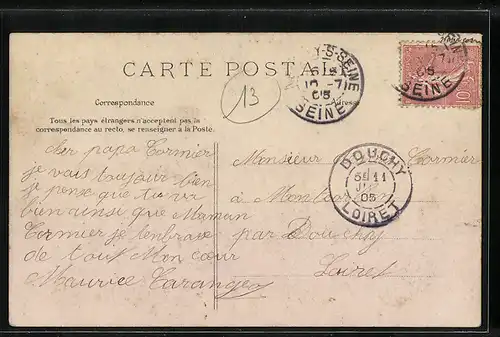 CARTE POSTALE
Correspondance
Tous les pays étrangers n'acceptent pas la
correspondance au recto, se renseigner à la Poste.
Adresse
13
S-SEINE
10 -7
05
SEINE
SEINE
05
SEINE
10
DOUCHY
11
05
LOIRET
cher papa Cormier
je vais toujour bien
je pense que tu va
bien ainsi que Maman
Cormier je lembrase
de tout Mon cœur
Maurice Taranger
Monsieur Cormier
à
par Douchy
Loiret